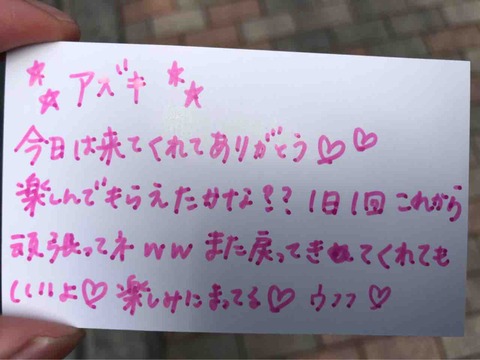 ☆☆ アズキ ☆☆
今日は来てくれてありがとう♡♡
楽しんでもらえたかな!? 1日1回 これから
頑張ってネww また戻ってきてくれても
いいよ♡ 楽しみにまってる♡ ウフフ ♡